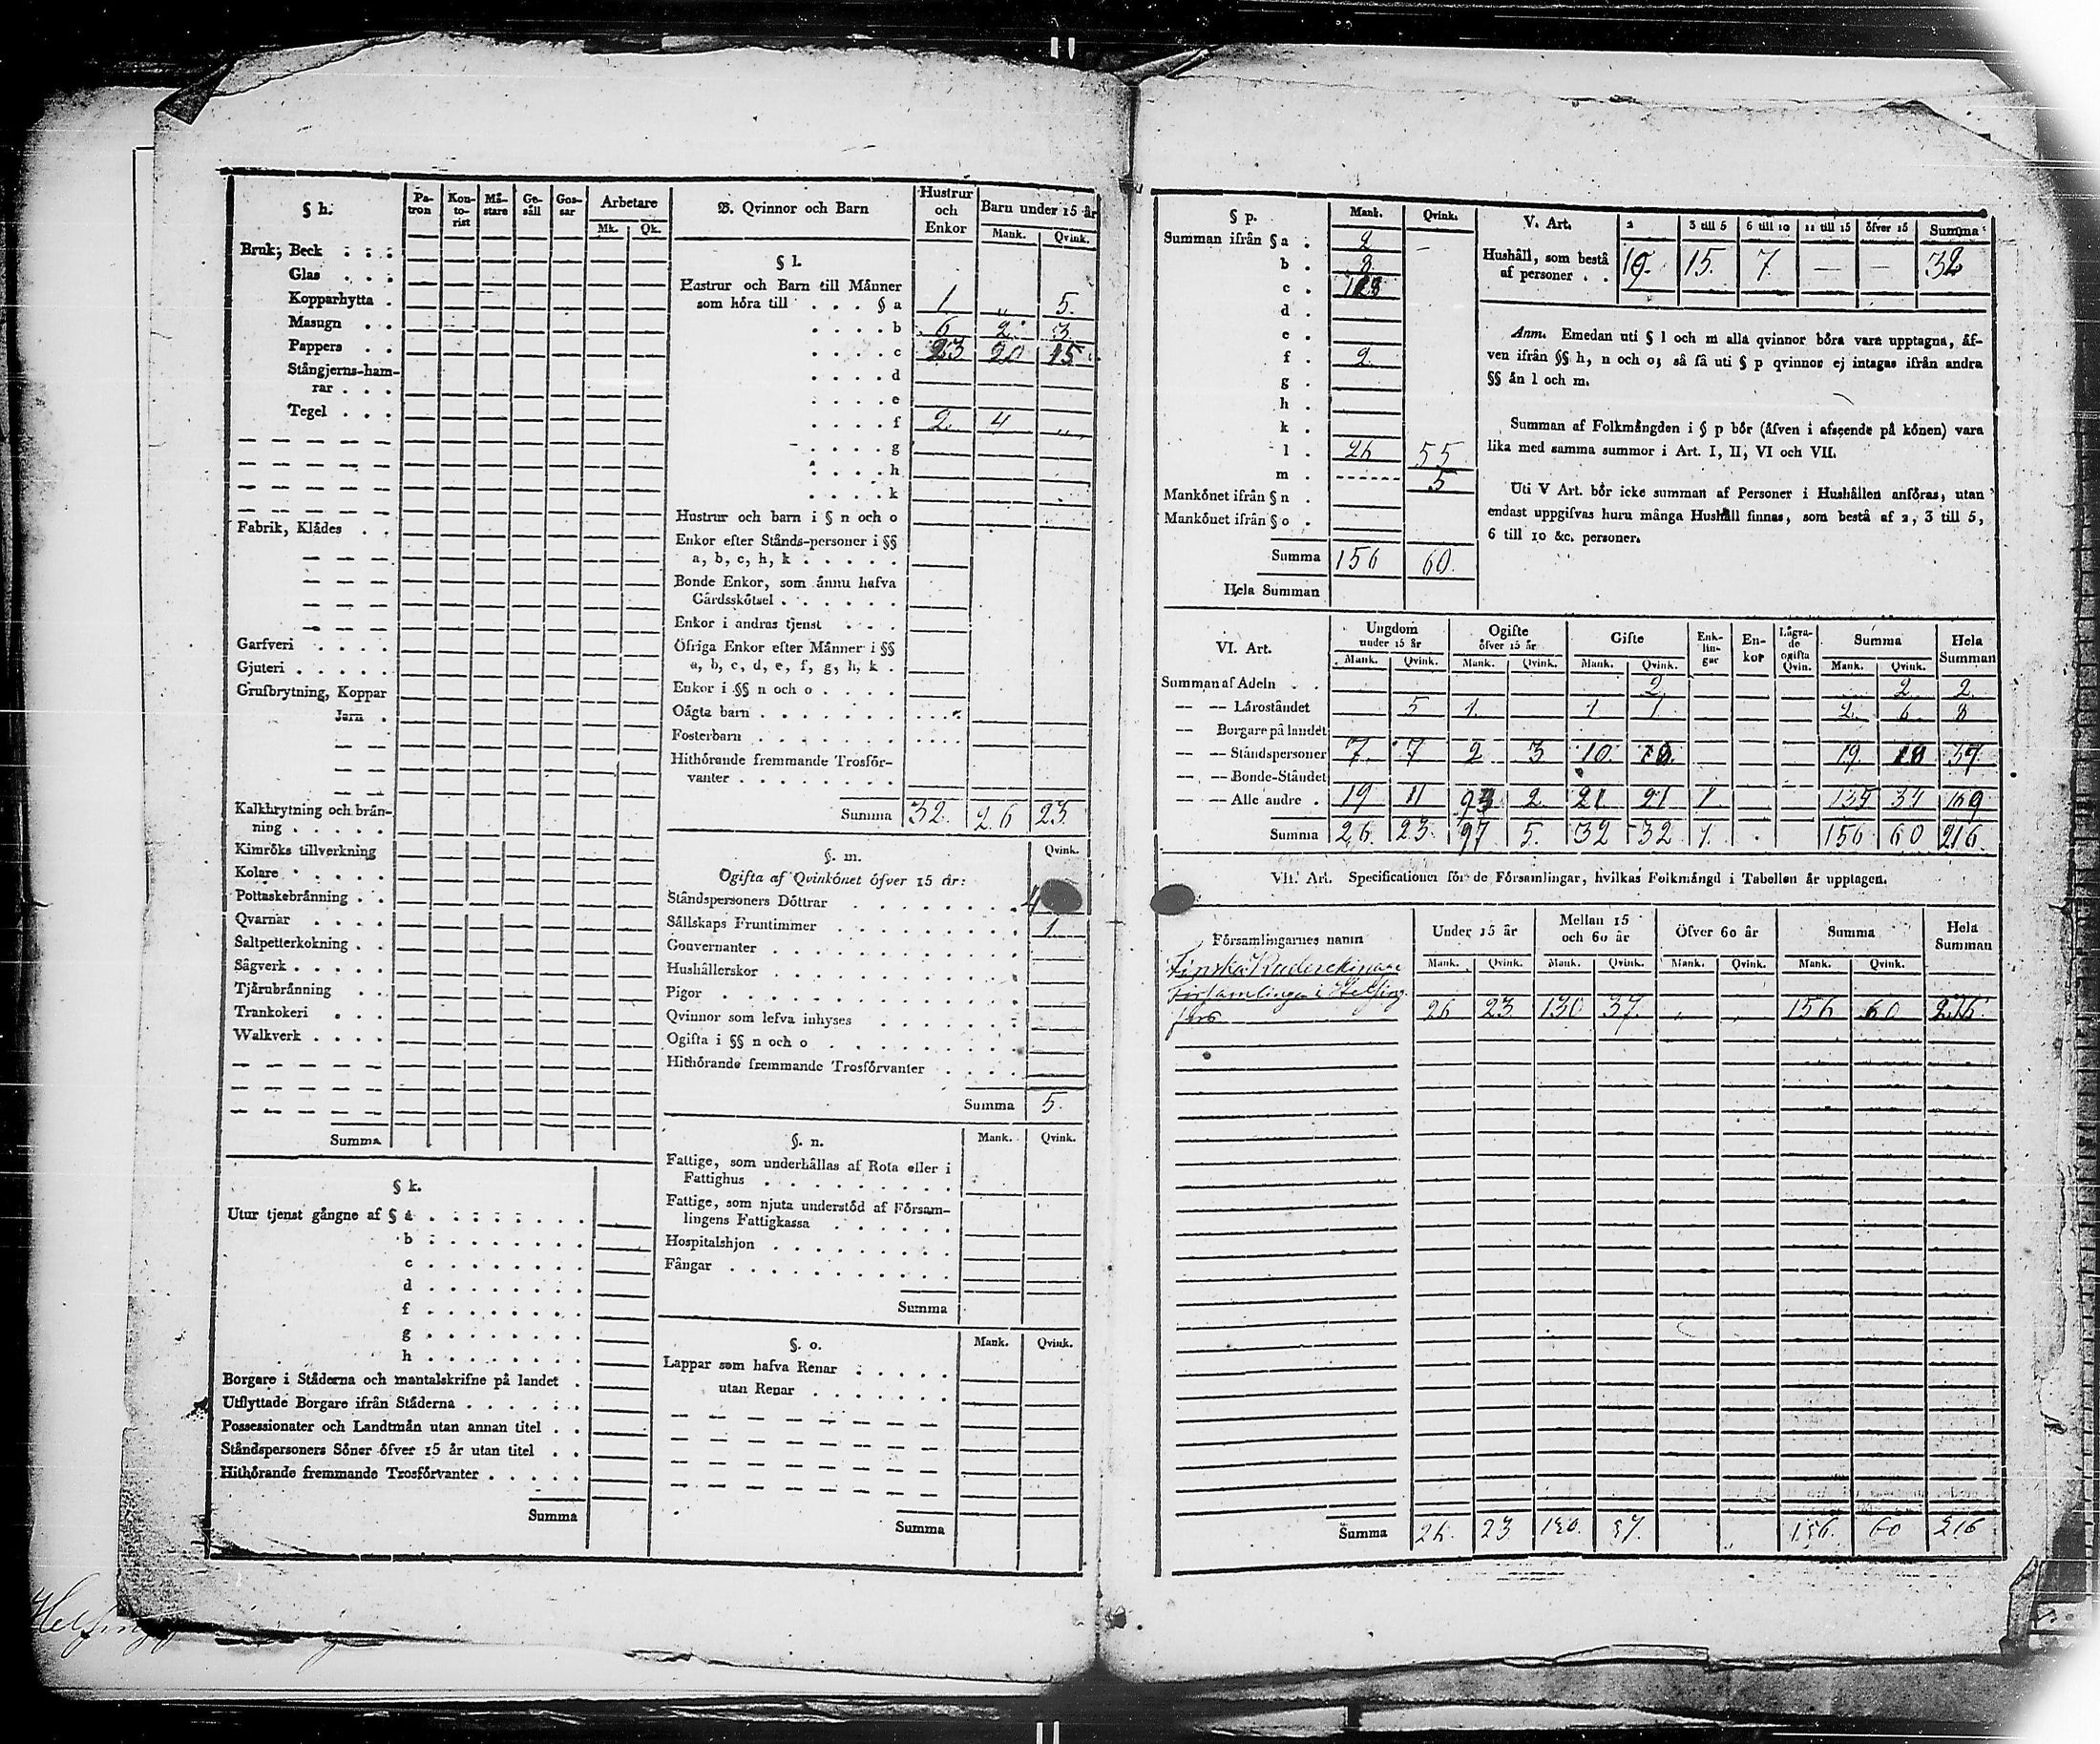 § h.
Pa-tron Kon-to-rist Må-stare Ge-såll Gos-sar Arbetare
Mk. Qk.
Bruk, Beck . . .
Glas . . .
Kopparhytta .
Masugn . .
Pappers . .
Stångjerns-ham-
rar . . .
Tegel . . .
Fabrik, Klådes . .
Garfveri . . . .
Gjuteri . . . . .
Grufbrytning, Koppar
Jarn .
Kalkbrytning och brån-
ning . . . . .
Kimröks tillverkning
Kolare . . . . .
Pottaskebrånning . .
Qvarnar . . . .
Saltpetterkokning . .
Sågverk . . . . .
Tjårubrånning . .
Trankokeri . . .
Walkverk . . . .
Summa
§ k.
Utur tjenst gångne af § a . . . . . . . .
b . . . . . . . .
c . . . . . . . .
d . . . . . . . .
f . . . . . . . .
g . . . . . . . .
h . . . . . . . .
Borgare i Ståderna och mantalskrifne på landet .
Utflyttade Borgare ifrån Ståderna . . . . . .
Possessionater och Landtmån utan annan titel . .
Ståndspersoners Söner öfver 15 år utan titel . .
Hithörande fremmande Trosförvanter . . . . .
Summa
B. Qvinnor och Barn
Hustrur och Enkor Barn under 15 år
Mank. Qvink.
§ l.
Hustrur och Barn till Månner
som höra till . . . § a 1 „ 5.
. . . . b 6 2. 3
. . . . c 23 20 15
. . . . d
. . . . e
. . . . f 2. 4 „
. . . . g
. . . . h
. . . . k
Hustrur och barn i § n och o
Enkor efter Stånds-personer i §§
a, b, c, h, k . . . . .
Bonde Enkor, som ånnu hafva
Gårdsskötsel . . . . . .
Enkor i andras tjenst . . .
Öfriga Enkor efter Månner i §§
a, b, c, d, e, f, g, h, k .
Enkor i §§ n och o . . . .
Oågta barn . . . . . . .
Fosterbarn . . . . . . .
Hithörande fremmande Trosför-
vanter . . . . . . . .
Summa 32. 26 23
§. m.
Qvink.
Ogifta af Qvinkönet öfver 15 år:
Ståndspersoners Döttrar . . . . . . . 4
Sållskaps Fruntimmer . . . . . . . . 1.
Gouvernanter . . . . . . . . . .
Hushållerskor . . . . . . . . . .
Pigor . . . . . . . . . . . .
Qvinnor som lefva inhyses . . . . . .
Ogifta i §§ n och o . . . . . . . .
Hithörande fremmande Trosförvanter . . . .
Summa 5.
§. n.
Mank. Qvink.
Fattige, som underhållas af Rota eller i
Fattighus . . . . . . . . .
Fattige, som njuta understöd af Försam-
lingens Fattigkassa . . . . . .
Hospitalshjon . . . . . . . . .
Fångar . . . . . . . . . . .
Summa
§. o.
Mank. Qvink.
Lappar som hafva Renar . . . . .
utan Renar . . . . . . .
Summa
§ p.
Mank. Qvink.
Summan ifrån § a . 2 –
b . 8.
c . 118
d .
e .
f . 2.
g .
h .
k .
l . 26 55
m . 5
Mankönet ifrån § n .
Mankönet ifrån § o .
Summa 156 60.
Hela Summan
V. Art. 2 3 till 5 6 till 10 11 till 15 öfver 15 Summa
Hushåll, som bestå
af personer . . 10. 15. 7. — — 32
Anm. Emedan uti § l och m alla qvinnor böra vara upptagna, åf-
ven ifrån §§ h, n och o; så få uti § p qvinnor ej intagas ifrån andra
§§ ån l och m.
Summan af Folkmångden i § p bör (åfven i afseende på könen) vara
lika med samma summor i Art. I, II, VI och VII.
Uti V Art. bör icke summan af Personer i Hushållen anföras, utan
endast uppgifvas huru många Hushåll finnas, som bestå af 2, 3 till 5,
6 till 10 &c. personer.
VI. Art. Ungdom under 15 år Ogifte öfver 15 år Gifte Enk-lin-gar En-kor Lågra-de ogifta Qvin. Summa Hela Summan
Mank. Qvink. Mank. Qvink. Mank. Qvink. Mank. Qvink.
Summan af Adeln . . 2 2 2.
— — Låroståndet 5 1. 1 1 2. 6 8
— Borgare på landet
— — Ståndspersoner 7. 7 2 3 10. 10. 19. 18 37
— — Bonde-Ståndet
— — Alle andre . 19 11 2 21 21 1. 135 34 169
Summa 26. 23. 97 5. 32 32 1. 156 60 216
VII. Art. Specificationer för de Församlingar, hvilkas Folkmångd i Tabellen år upptagen.
Församlingarnes namn Under 15 år Mellan 15 och 60 år Öfver 60 år Summa Hela Summan
Mank. Qvink. Mank. Qvink. Mank. Qvink. Mank. Qvink.
Finska
Församlingen i Helsing-
fors 26 23 130 37. „ „ 156 60 216.
Summa 26. 23 130. 37. 156. 60 216